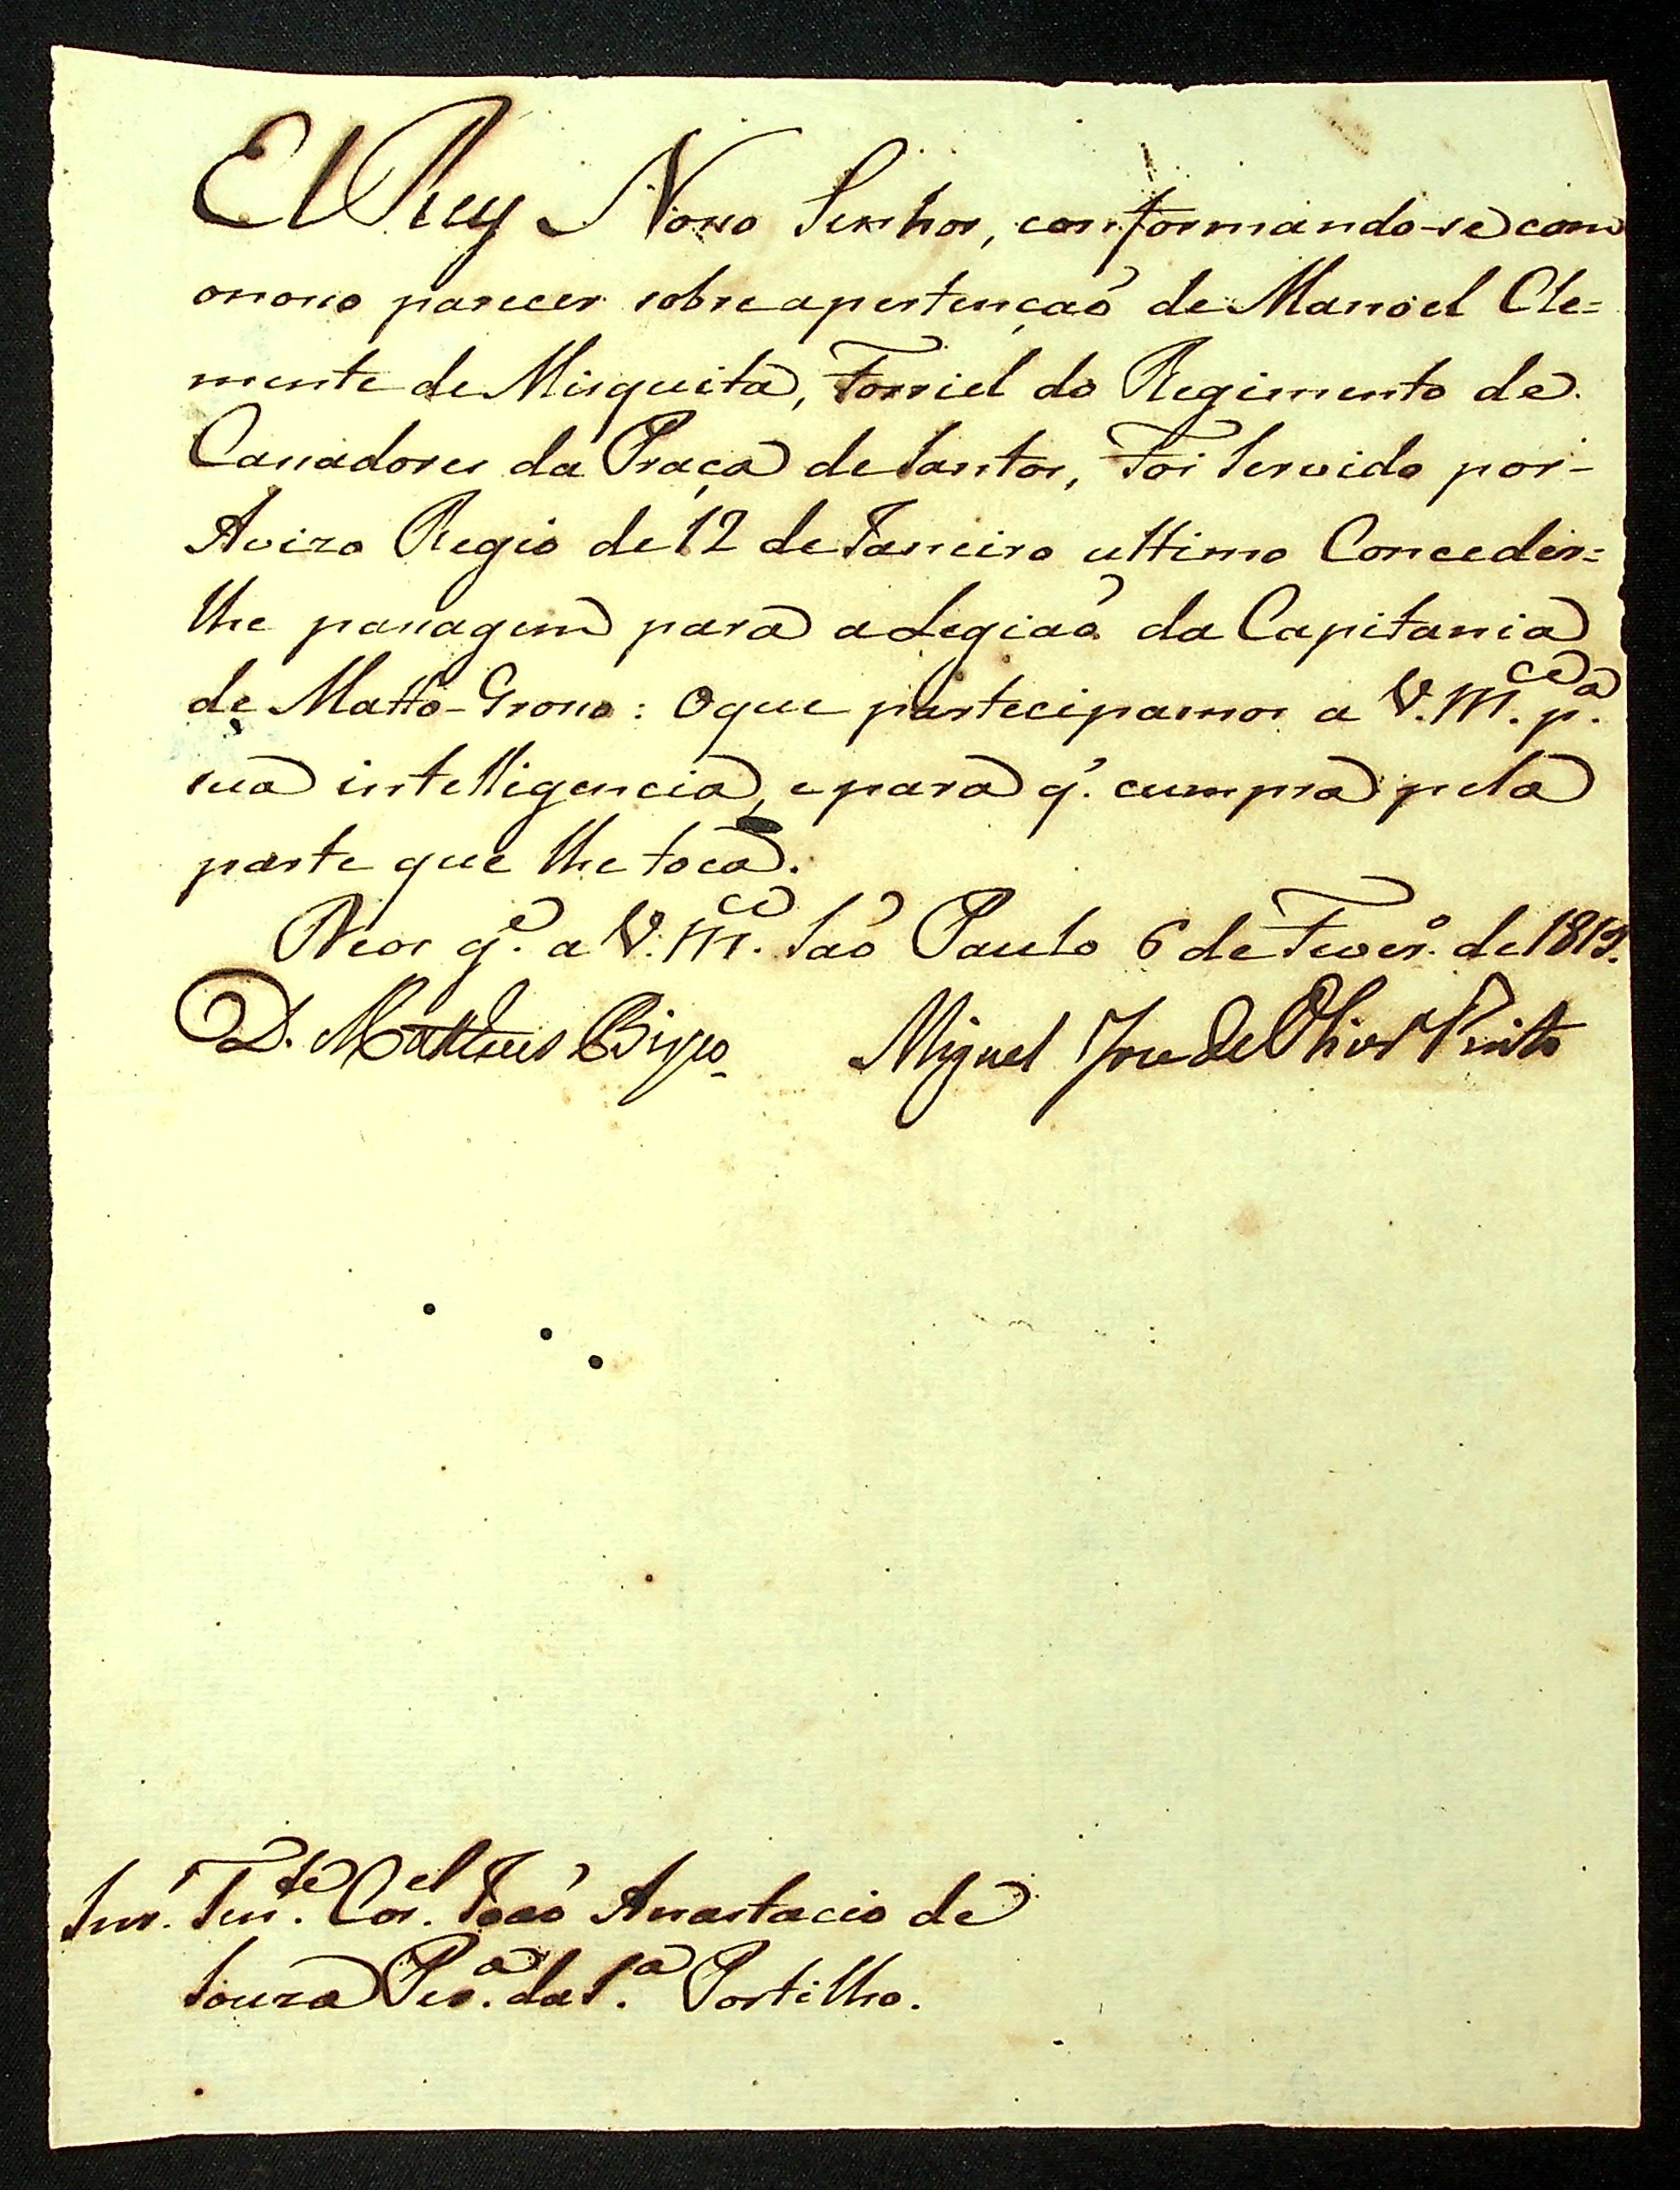 ElRey Nosso Senhor, conformando-se com
onosso parecer sobreapertençaõ de Manoel Cle=
mente de Misquita, Forriel do Regimento de
Cassadores da Praça deSantos, Foi Servido por-
Avizo Regio de 12 de Janeiro ultimo Conceder=
lhe passagem para aLegiaõ da Capitania
de Matto-Grosso: Oque partecipamos a V.M.ce p.a
sua intelligencia, epara q̃. cumpra pela
parte que lhe toca.
Deos g.e a V.M.ce Saõ Paulo 6 de Fever.o de 1819.
D. Matheus Bispo
Miguel Joze de Olivr.a Pinto
Snr. Ten.te Cor.el Joaõ Anastacio de
Souza Per.a da S.a Portilho.